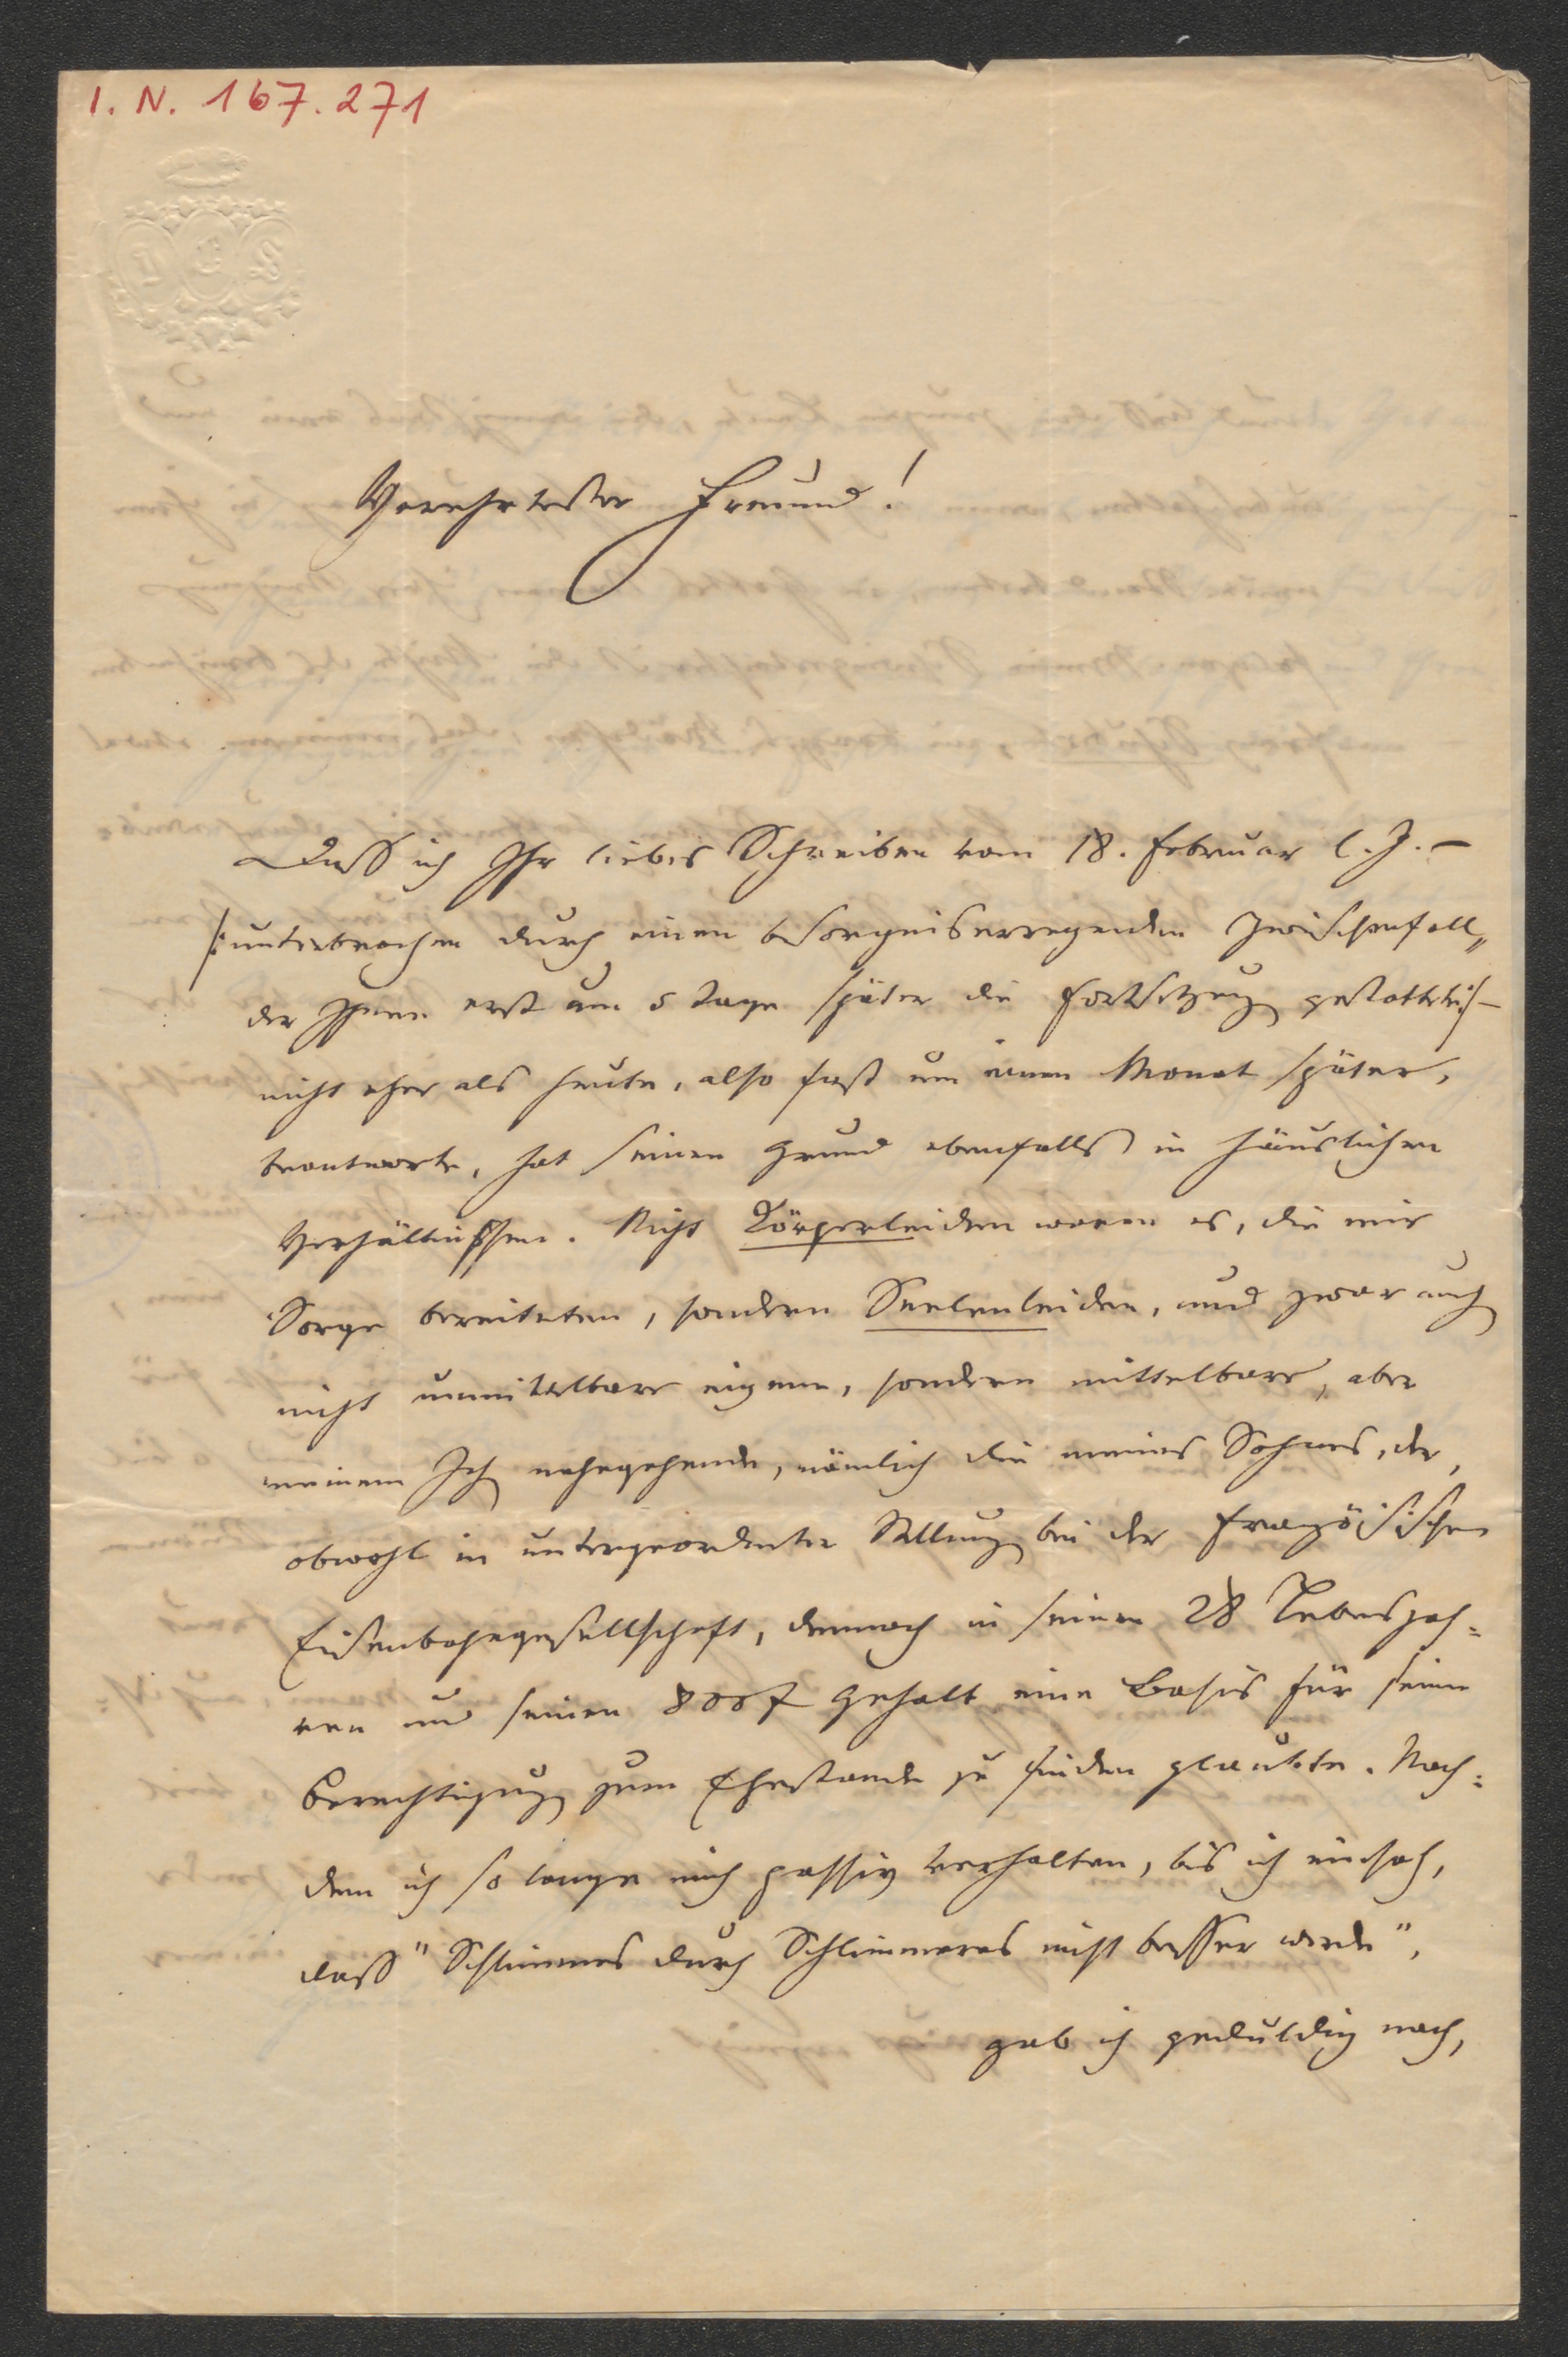 I. N. 167.271
Verehrtester Freund!
Dass ich Ihr liebes Schreiben vom 18. Februar l. J. –
/: unterbrochen durch einen besorgniserregenden Zwischenfall,
der Ihnen erst um 5 Tage später die Fortsetzung gestattete :/ –
nicht eher als heute, also fast um einen Monat später,
beantworte, hat seinen Grund ebenfalls in häuslichen
Verhältnißsen. Nicht Körperleiden waren es, die mir
Sorge bereiteten, sondern Seelenleiden, und zwar auch
nicht unmittelbare eigene, sondern mittelbare, aber
meinem Ich nahegehende, nämlich die meines Sohnes, der,
obwohl in untergeordneter Stellung bei der französischen
Eisenbahngesellschaft, dennoch in seinen 28 Lebensjah=
ren und seinen 800 f Gehalt eine Basis für seine
Berechtigung zum Ehestande zu finden glaubte. Nach=
dem ich so lange mich passiv verhalten, bis ich einsah,
dass "Schlimmes durch Schlimmeres nicht besser werde",
gab ich geduldig nach,